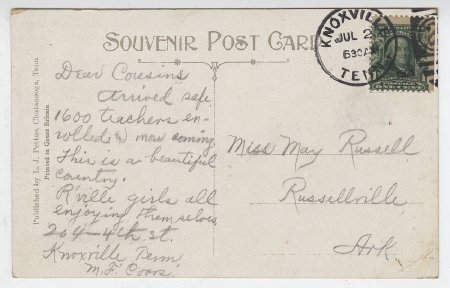 SOUVENIR POST CARD
KNOXVILLE
JUL 2
630AM
TENN
Published by L. J. Peeton, Chattanooga, Tenn
Printed in Great Britain
Dear Cousins
Arrived safe.
1600 teachers en-
rolled & more coming
This is a beautiful
country.
R'ville girls all
enjoying themselves
204-4th st.
Knoxville Tenn
M. F. Coors.
Miss May Russell
Russellville,
Ark